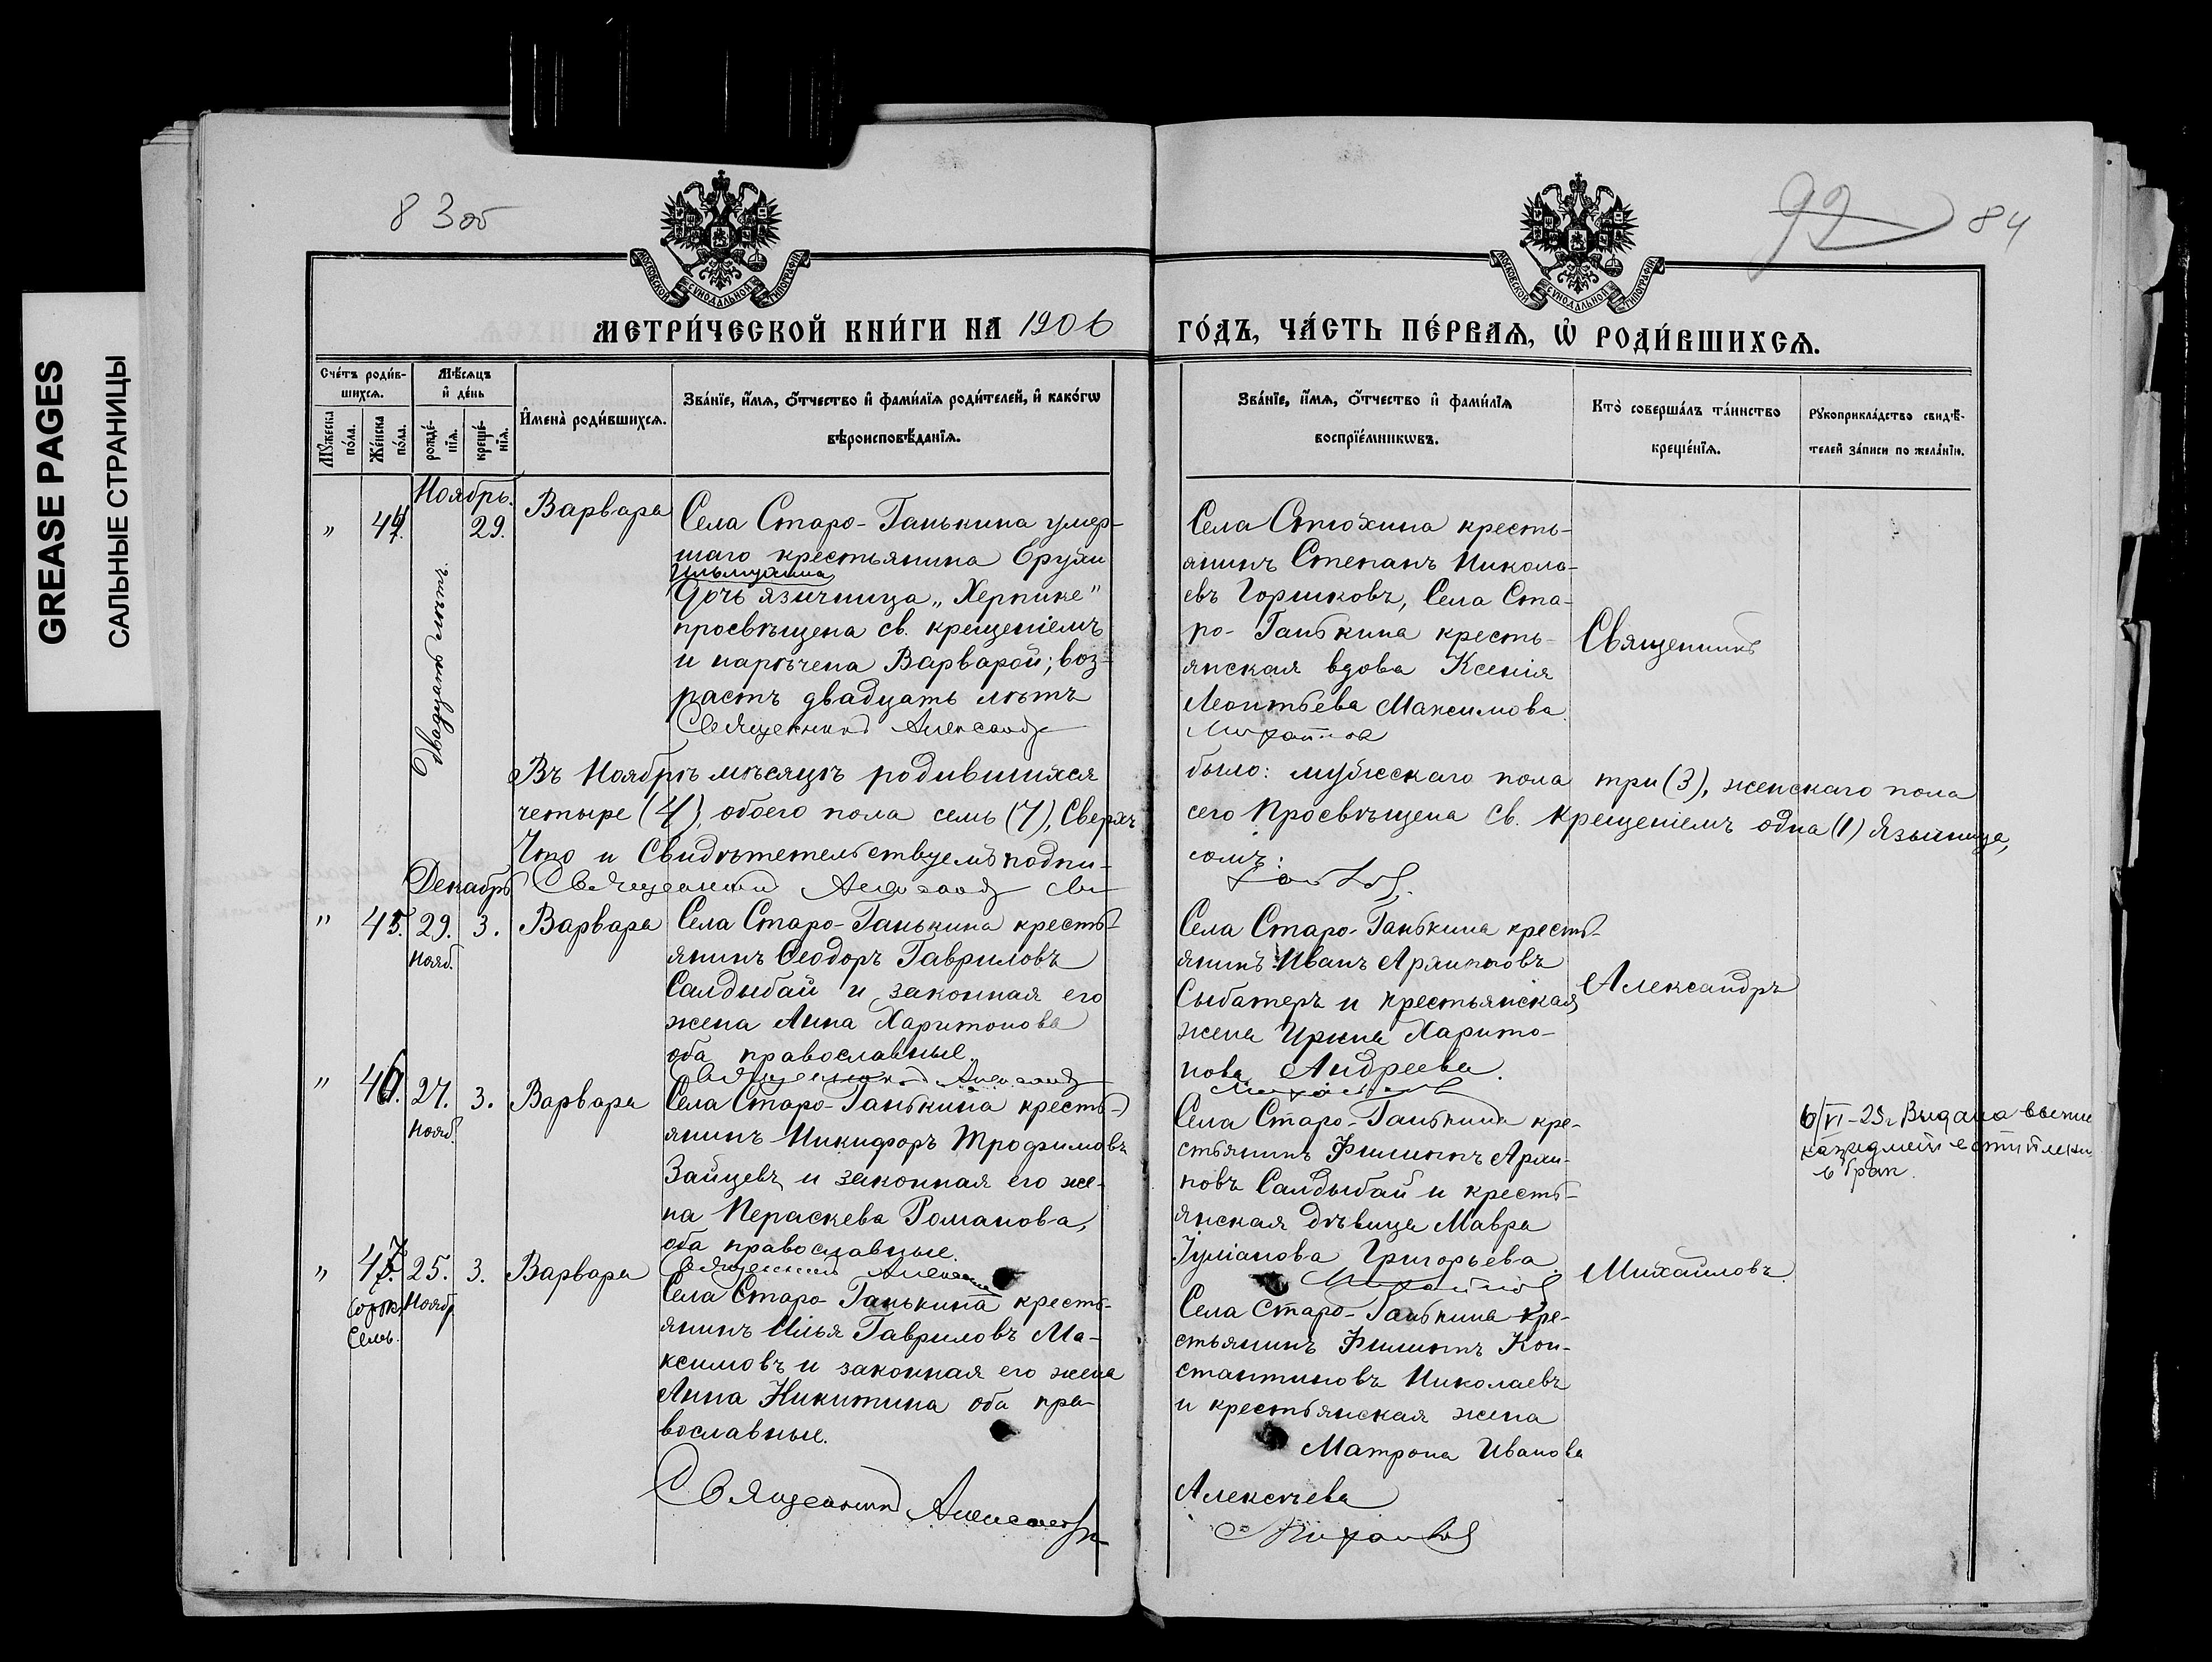 GREASE PAGES
САЛЬНЫЕ СТРАНИЦЫ
83об
92 84
МОСКОВСКОЙ СѴНОДАЛЬНОЙ ТИПОГРАФІИ
МОСКОВСКОЙ СѴНОДАЛЬНОЙ ТИПОГРАФІИ
МЕТРИ́ЧЕСКОЙ КНИ́ГИ НА 1906
ГО́ДЪ, ЧА́СТЬ ПЕ́РВАѦ, Ѡ҆ РОДИ́ВШИХСѦ.
Сче́тъ роди́в-
шихсѧ.
Мѣ́сѧцъ
и҆ де́нь
Мꙋ́жеска
по́ла.
Же́нска
по́ла.
рожде́-
нїѧ.
креще́-
нїѧ.
И҆мена̀ роди́вшихсѧ.
Зва́нїе, и҆́мѧ, ѻ҆́тчество и҆ фами́лїѧ роди́телей, и҆ како́гѡ
вѣроисповѣ́данїѧ.
Зва́нїе, и҆́мѧ, ѻ҆́тчество и҆ фами́лїѧ
воспрїе́мникѡвъ.
Кто̀ соверша́лъ та́инство
креще́нїѧ.
Рꙋкоприкла́дство свидѣ́-
телей за́писи по жела́нїю.
Ноябрь.
" 44. 29. Варвара
двадцать лѣтъ
Села Старо-Ганькина умер-
шаго крестьянина Еруки
дочь язычница „Херпике"
просвѣщена св. крещеніемъ
и наречена Варварой; воз-
растъ двадцать лѣтъ
Священникъ Александръ
Села Стюхина кресть-
янинъ Степанъ Никола-
евъ Горшковъ, Села Ста-
ро-Ганькина кресть-
янская вдова Ксенія
Леонтьева Максимова.
Михайловъ
Священникъ
Въ Ноябрѣ мѣсяцѣ родившихся
было: мужескаго пола три (3), женскаго пола
четыре (4), обоего пола семь (7), Сверхъ
сего Просвѣщена Св. Крещеніемъ одна (1) Язычница,
Что и Свидѣтельствуемъ подпи-
сомъ:
Священникъ Александръ
Декабрь
" 45. 29. 3. Варвара
Нояб.
Села Старо-Ганькина кресть-
янинъ Ѳеодоръ Гавриловъ
Салдыбай и законная его
жена Анна Харитонова
оба православные.
Священникъ Александръ
Села Старо-Ганькина кресть-
янинъ Иванъ
Сыбатеръ и крестьянская
жена Ирина Харито-
нова Андреева.
Михайловъ
Александръ
" 46. 27. 3. Варвара
Нояб.
Села Старо-Ганькина кресть-
янинъ Никифоръ Трофимовъ
Зайцевъ и законная его же-
на Пераскева Романова,
оба православные.
Священникъ Александръ
Села Старо-Ганькина кре-
стьянинъ Филиппъ Архи-
повъ Салдыбай и кресть-
янская дѣвица Мавра
Іуліанова Григорьева.
Михайловъ
6/VI-23г. Выдана
в брак.
" 47. 25. 3. Варвара
Сорокъ Нояб.
Семь.
Села Старо-Ганькина кресть-
янинъ Илья Гавриловъ Ма-
ксимовъ и законная его жена
Анна Никитина оба пра-
вославные.
Священникъ Александръ
Села Старо-Ганькина кре-
стьянинъ Филиппъ Кон-
стантиновъ Николаевъ
и крестьянская жена
Матрона Иванова
Алексѣева
Михайловъ
Михайловъ.